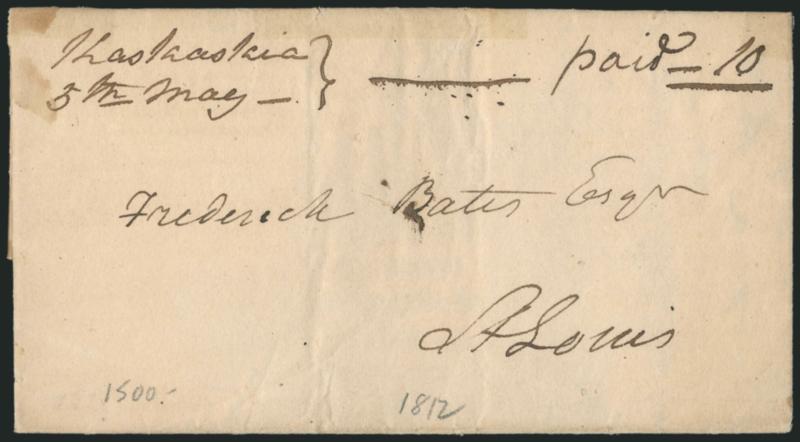 Kaskaskia
5th May —
paid — 10
Frederick Bates Esqr
St Louis
1500.-
1812